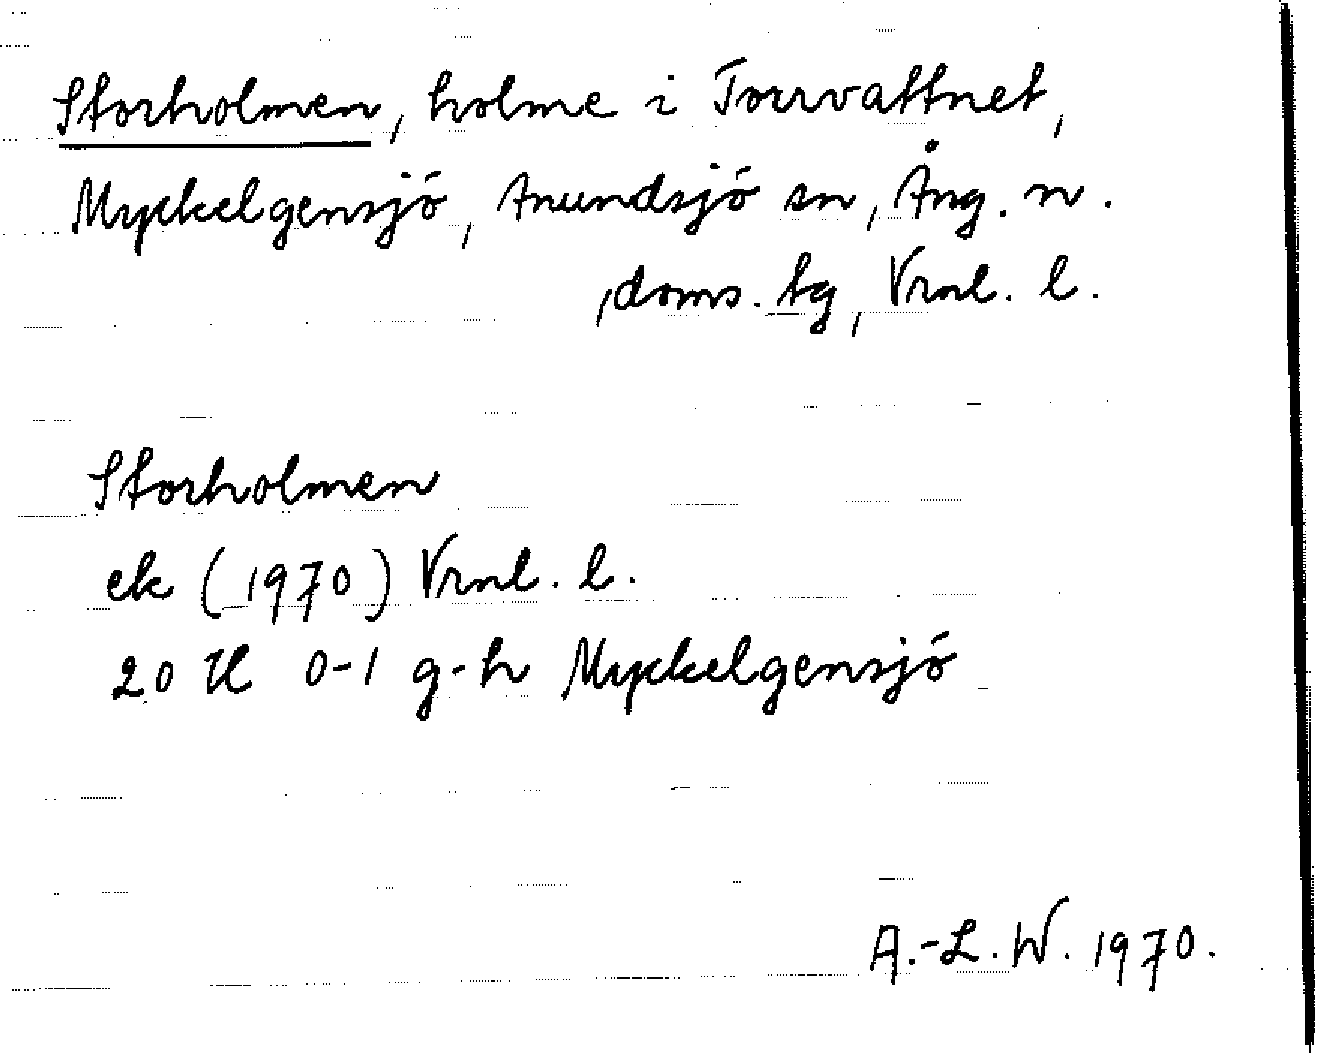 Storholmen, holme i Torrvattnet,
Myckelgensjö, Anundsjö sn, Ång. n.
, doms. tg, Vrnl. l.
Storholmen
ek (1970) Vrnl. l.
20 H 0-1 g-h Myckelgensjö
A.-L. W. 1970.